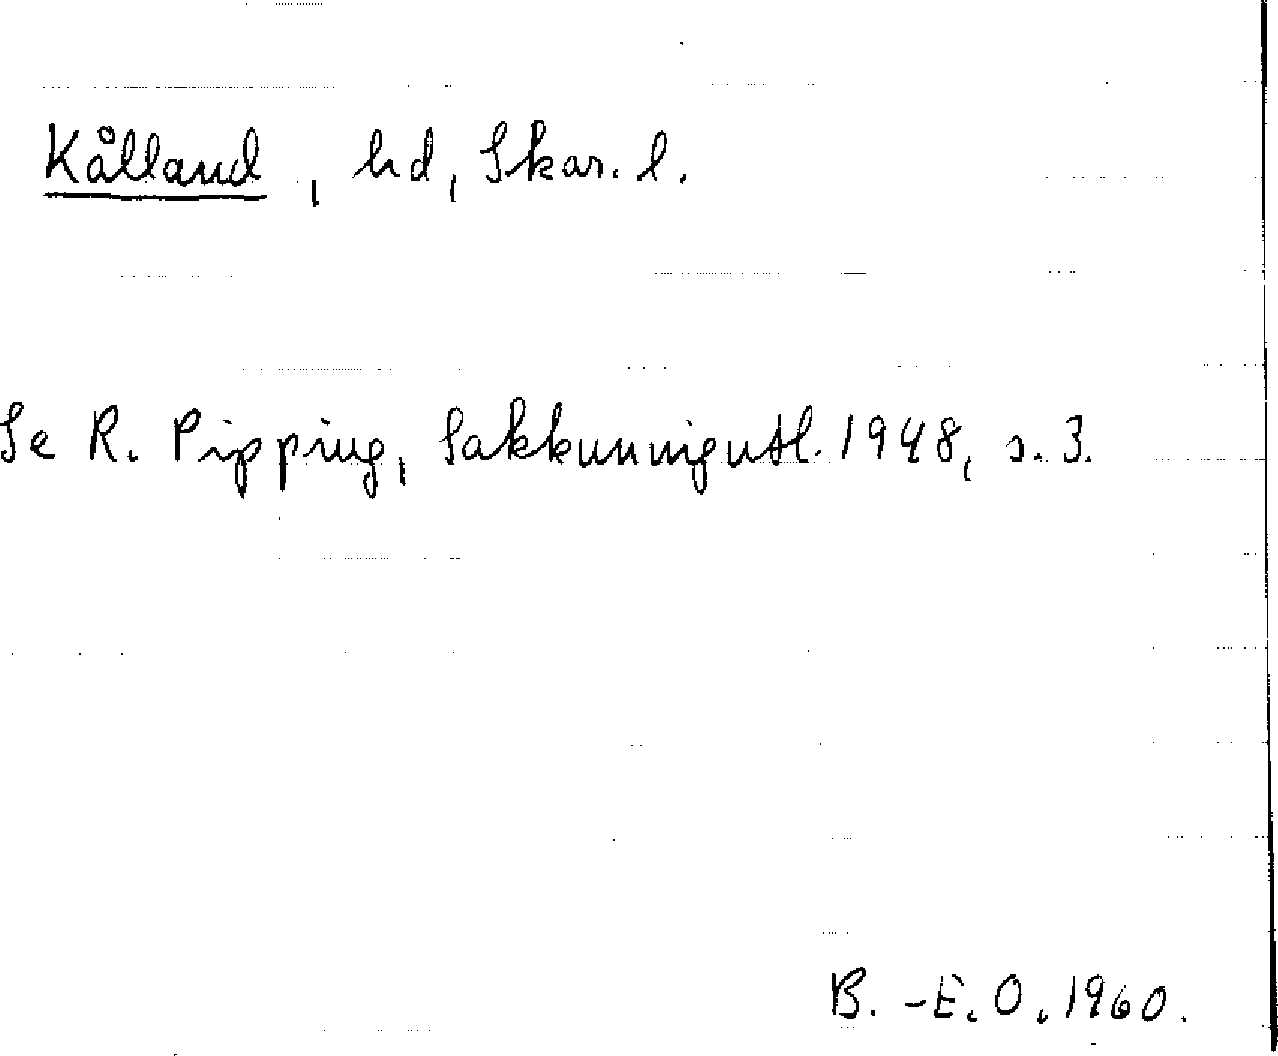 Kålland, hd, Skar. l.
Se R. Pipping, Sakkunnigutl. 1948, s. 3.
B.-E. O. 1960.